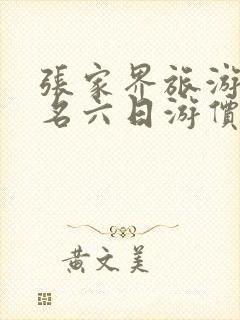 張家界旅游
名六日游價
黄文美